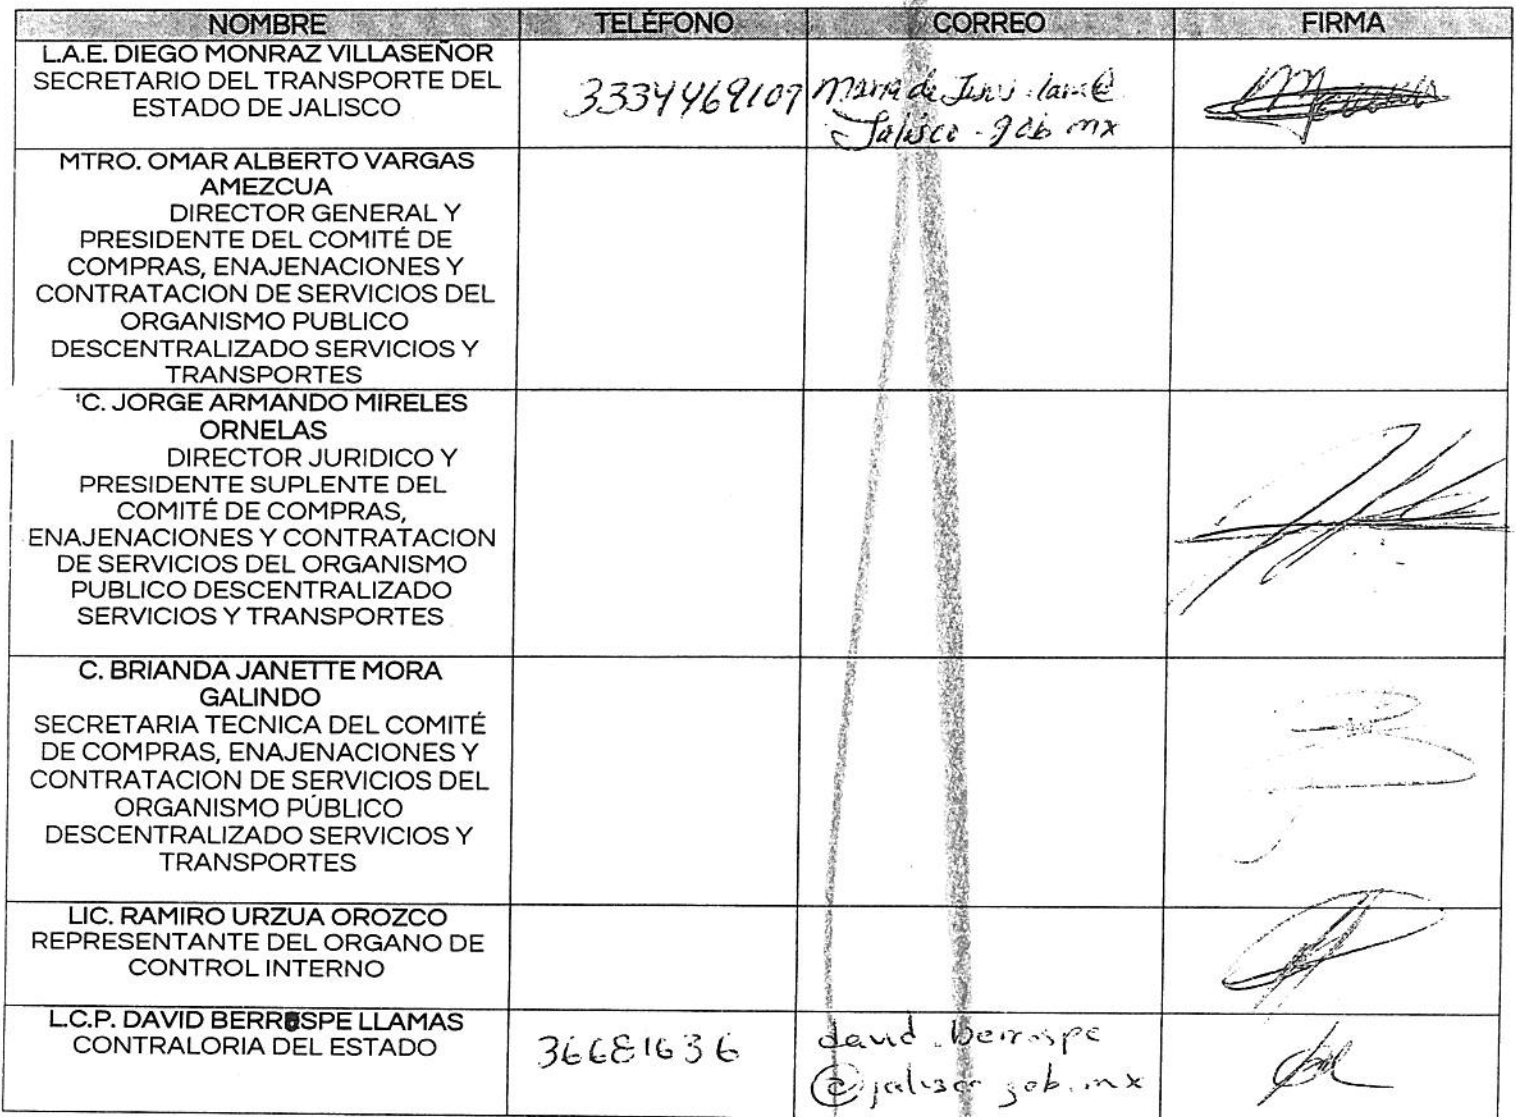 NOMBRE TELÉFONO CORREO FIRMA
L.A.E. DIEGO MONRAZ VILLASEÑOR
SECRETARIO DEL TRANSPORTE DEL
ESTADO DE JALISCO
3334469107
Maria de Jesus
Jalisco.gob.mx
MTRO. OMAR ALBERTO VARGAS
AMEZCUA
DIRECTOR GENERAL Y
PRESIDENTE DEL COMITÉ DE
COMPRAS, ENAJENACIONES Y
CONTRATACION DE SERVICIOS DEL
ORGANISMO PUBLICO
DESCENTRALIZADO SERVICIOS Y
TRANSPORTES
'C. JORGE ARMANDO MIRELES
ORNELAS
DIRECTOR JURIDICO Y
PRESIDENTE SUPLENTE DEL
COMITÉ DE COMPRAS,
ENAJENACIONES Y CONTRATACION
DE SERVICIOS DEL ORGANISMO
PUBLICO DESCENTRALIZADO
SERVICIOS Y TRANSPORTES
C. BRIANDA JANETTE MORA
GALINDO
SECRETARIA TECNICA DEL COMITÉ
DE COMPRAS, ENAJENACIONES Y
CONTRATACION DE SERVICIOS DEL
ORGANISMO PÚBLICO
DESCENTRALIZADO SERVICIOS Y
TRANSPORTES
LIC. RAMIRO URZUA OROZCO
REPRESENTANTE DEL ORGANO DE
CONTROL INTERNO
L.C.P. DAVID BERROSPE LLAMAS
CONTRALORIA DEL ESTADO
36681636
david.berrospe
@jalisco.gob.mx